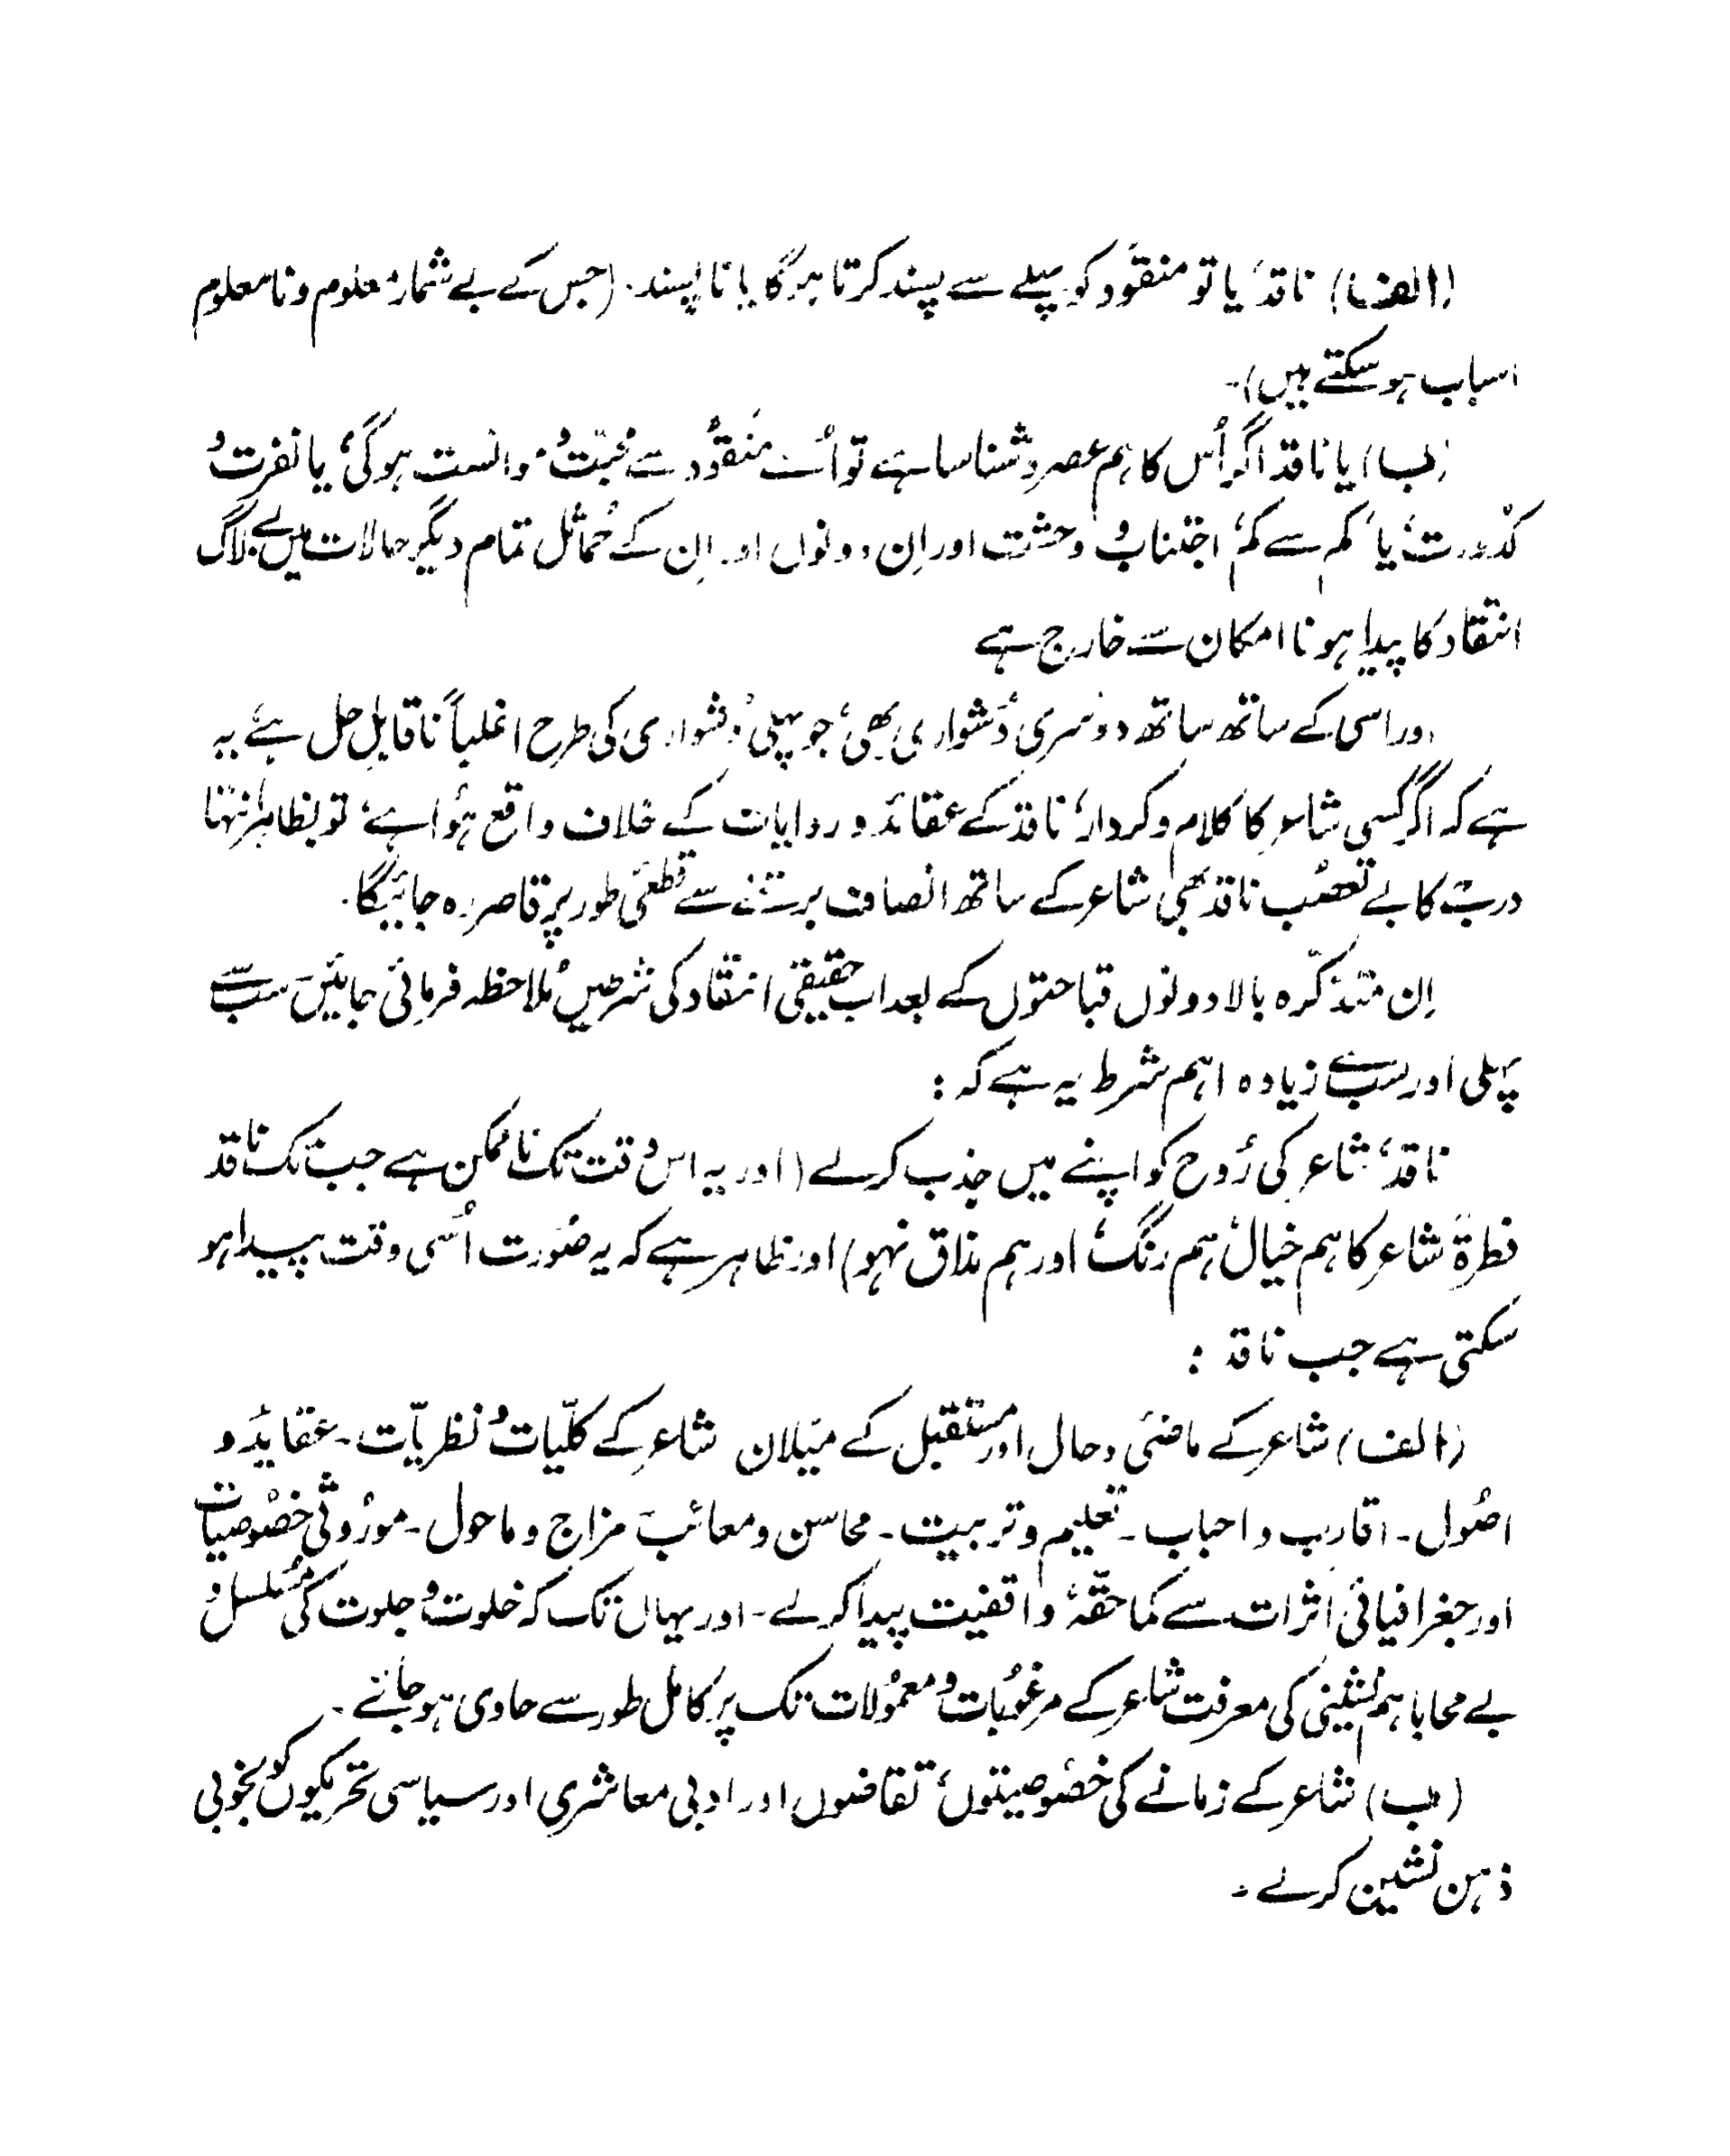 (الف) ناقد، یا تو منقود کو پہلے سے پسند کرتا ہوگا یا ناپسند۔ (جس کے بے شمار، معلوم و نامعلوم
اسباب ہو سکتے ہیں)۔
(ب) یا ناقد اگر اُس کا ہم عصر و شناسا ہے تو اُسے منقُود سے محبّت و موانست ہوگی، یا نفرت و
کدورت، یا، کم سے کم، اجتناب و وحشت اور اِن دونوں اور اِن کے مُماثل تمام دیگر حالات میں بے لاگ
انتقاد کا پیدا ہونا امکان سے خارج ہے
اور اسی کے ساتھ ساتھ دوسری دُشواری بھی، جو پہلی دُشواری کی طرح اغلباً ناقابلِ حل ہے، یہ
ہے کہ اگر کسی شاعر کا کلام و کردار، ناقد کے عقائد و روایات کے خلاف واقع ہُوا ہے، تو بظاہر انتہا
درجے کا بے تعصّب ناقد بھی شاعر کے ساتھ انصاف برتنے سے قطعی طور پر قاصر رہ جائیگا۔
اِن متذکّرہ بالا دونوں قباحتوں کے بعد اب حقیقی انتقاد کی شرطیں مُلاحظہ فرمائی جائیں سب سے
پہلی اور سب سے زیادہ اہم شرط یہ ہے کہ :
ناقد، شاعر کی رُوح کو اپنے میں جذب کرلے (اور یہ اس وقت تک ناممکن ہے جب تک ناقد
فطرۃً شاعر کا ہم خیال، ہم رنگ، اور ہم مذاق نہو) اور ظاہر ہے کہ یہ صُورت اُسی وقت پیدا ہو
سکتی ہے جب ناقد :
(الف) شاعر کے ماضی و حال اور مستقبل کے میَلان شاعر کے کلّیات و نظریّات۔ عقاید و
اصُول۔ اقارب و احباب۔ تعلیم و تربیت۔ محاسن و معائب مزاج و ماحول۔ مورُوثی خصُوصیات
اور جغرافیائی اثرات سے کماحقّہٗ واقفیت پیدا کرلے۔ اور یہاں تک کہ خلوت و جلوت کی مُسلسل و
بے محابا ہم نشینی کی معرفت شاعر کے مرغوُبات و معمُولات تک پر کامل طور سے حاوی ہو جائے۔
(ب) شاعر کے زمانے کی خصُوصیتوں، تقاضوں اور ادبی معاشری اور سیاسی تحریکوں کو بخوبی
ذہن نشین کرلے۔